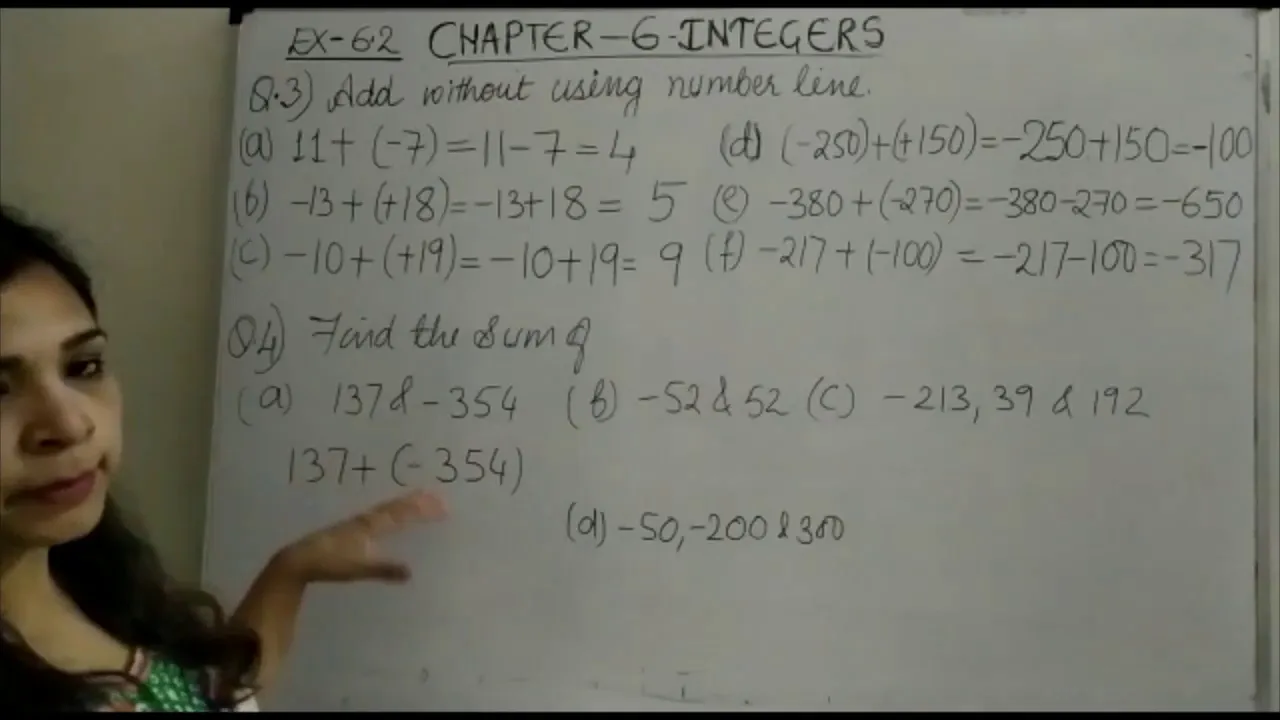 EX-6.2 CHAPTER-6-INTEGERS
Q.3) Add without using number line.
(a) 11+(-7)=11-7=4 (d) (-250)+(+150)=-250+150=-100
(b) -13+(+18)=-13+18= 5 (e) -380+(-270)=-380-270=-650
(c) -10+(+19)=-10+19= 9 (f) -217+(-100) = -217-100=-317
Q4) Find the Sum of
(a) 137 & -354 (b) -52 & 52 (c) -213, 39 & 192
137+(-354)
(d) -50, -200 & 300